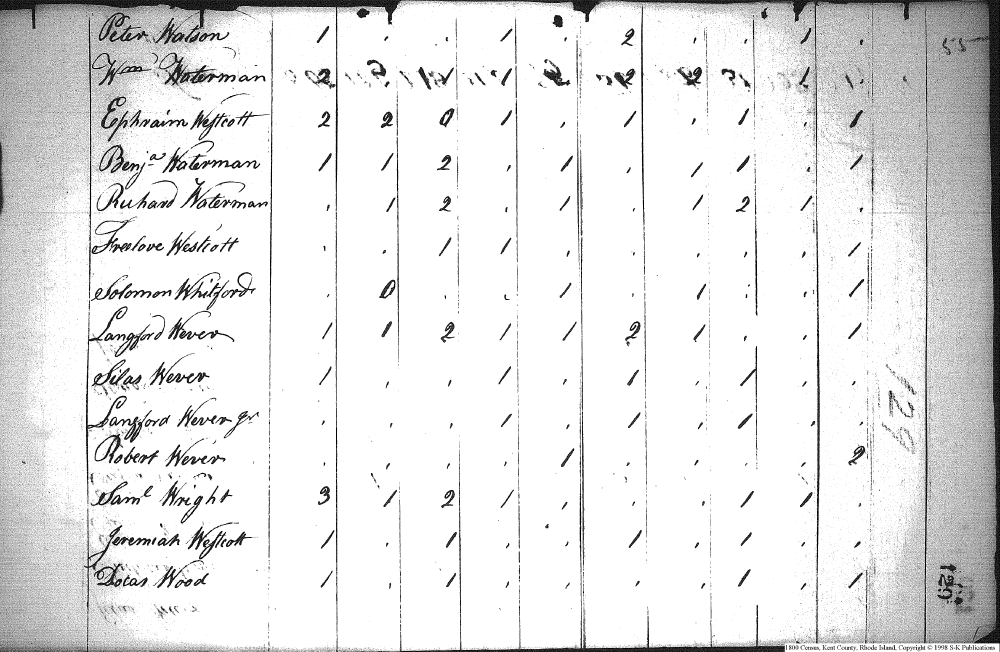 Peter Watson 1 . . 1 . 2 . . 1 . 55
Wm Waterman 2 1 1 2 2 1
Ephraim Westcott 2 2 0 1 . 1 . 1 . 1
Benja Waterman 1 1 2 . 1 . 1 1 . 1
Richard Waterman . 1 2 . 1 . 1 2 1 .
Freelove Westcott . . 1 1 . . . . . 1
Solomon Whitford . 0 . . 1 . 1 . . 1
Langford Wever 1 1 2 1 1 2 1 . . 1
Silas Wever 1 . . 1 . 1 . 1 . .
Langford Wever Jr . . . 1 . 1 . 1 . .
129
Robert Wever . . . . 1 . . . . 2
Saml Wright 3 1 2 1 . . . 1 1 .
Jeremiah Westcott 1 . 1 . . 1 . 1 . .
Docas Wood 1 . 1 . . . . 1 . 1
129
1800 Census, Kent County, Rhode Island, Copyright © 1998 S-K Publications